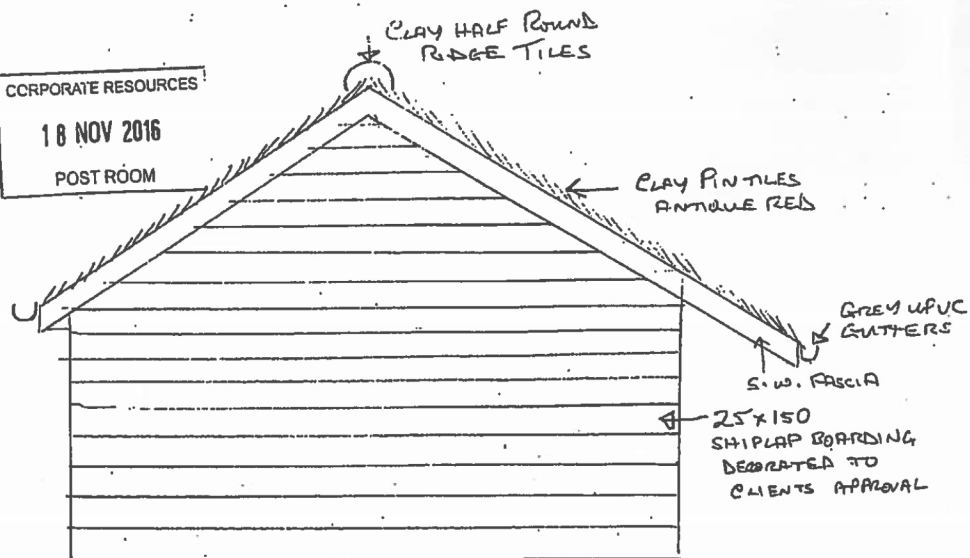 CLAY HALF ROUND
RIDGE TILES
CORPORATE RESOURCES
18 NOV 2016
POST ROOM
CLAY PIN TILES
ANTIQUE RED
GREY UPVC
GUTTERS
S.W. FASCIA
25x150
SHIPLAP BOARDING
DECORATED TO
CLIENTS APPROVAL